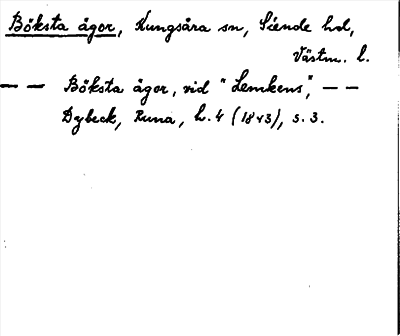 Böksta ägor, Kungsåra sn, Siende hd,
Västm. l.
— — Böksta ägor, vid "Lemkens", — —
Dybeck, Runa, h. 4 (1843), s. 3.